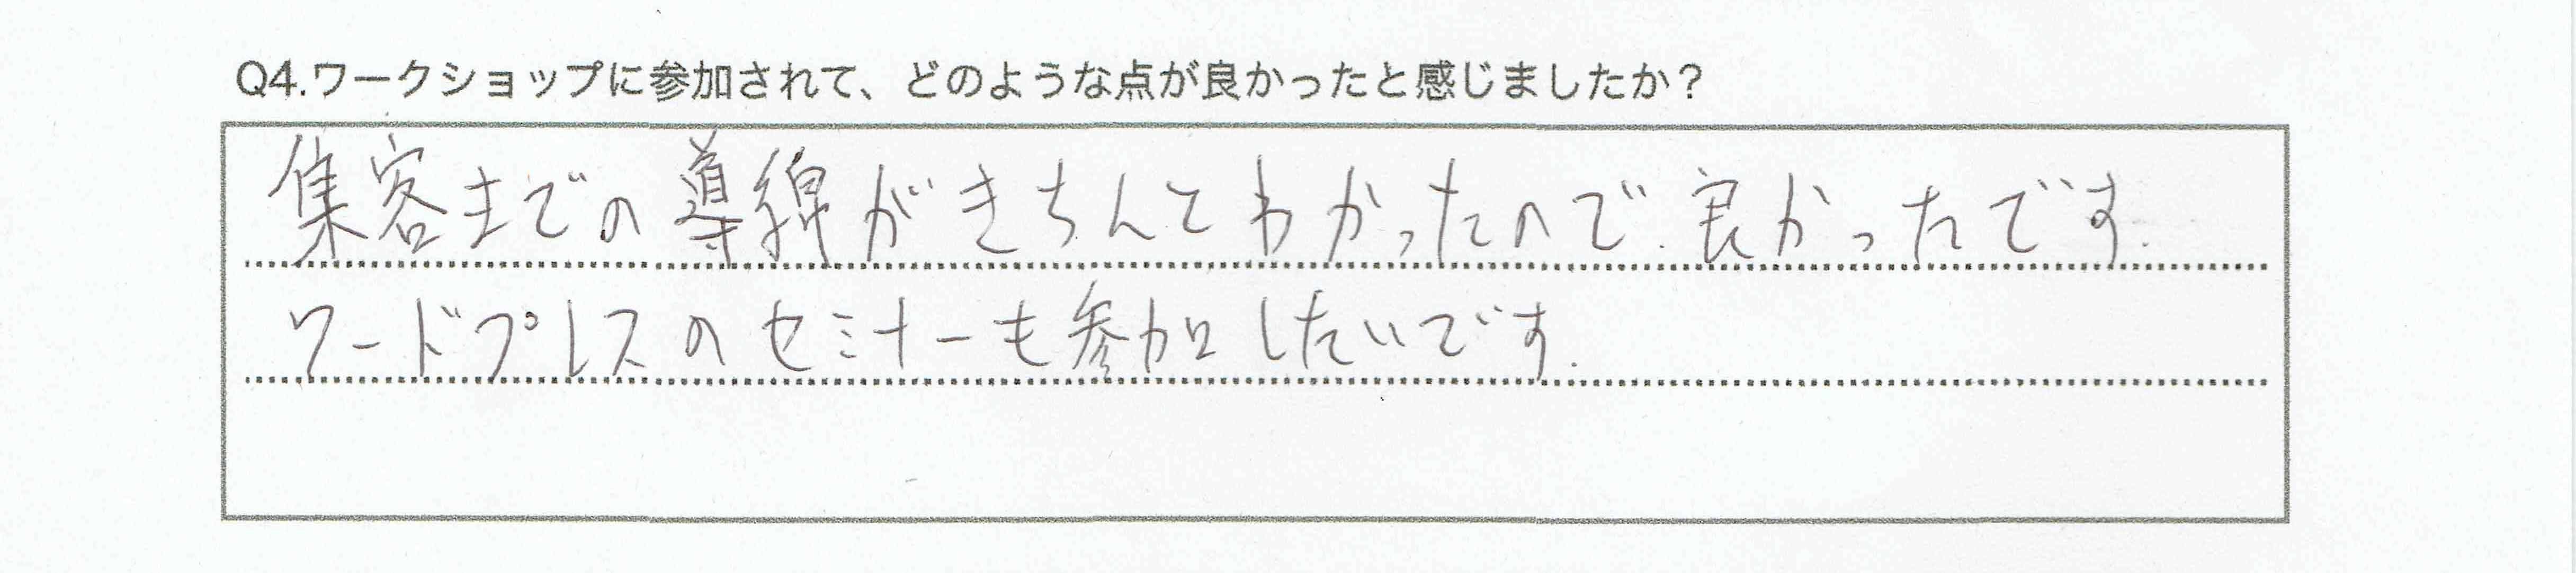 Q4.ワークショップに参加されて、どのような点が良かったと感じましたか？
集客までの導線がきちんとわかったので.良かったです.
ワードプレスのセミナーも参加したいです.